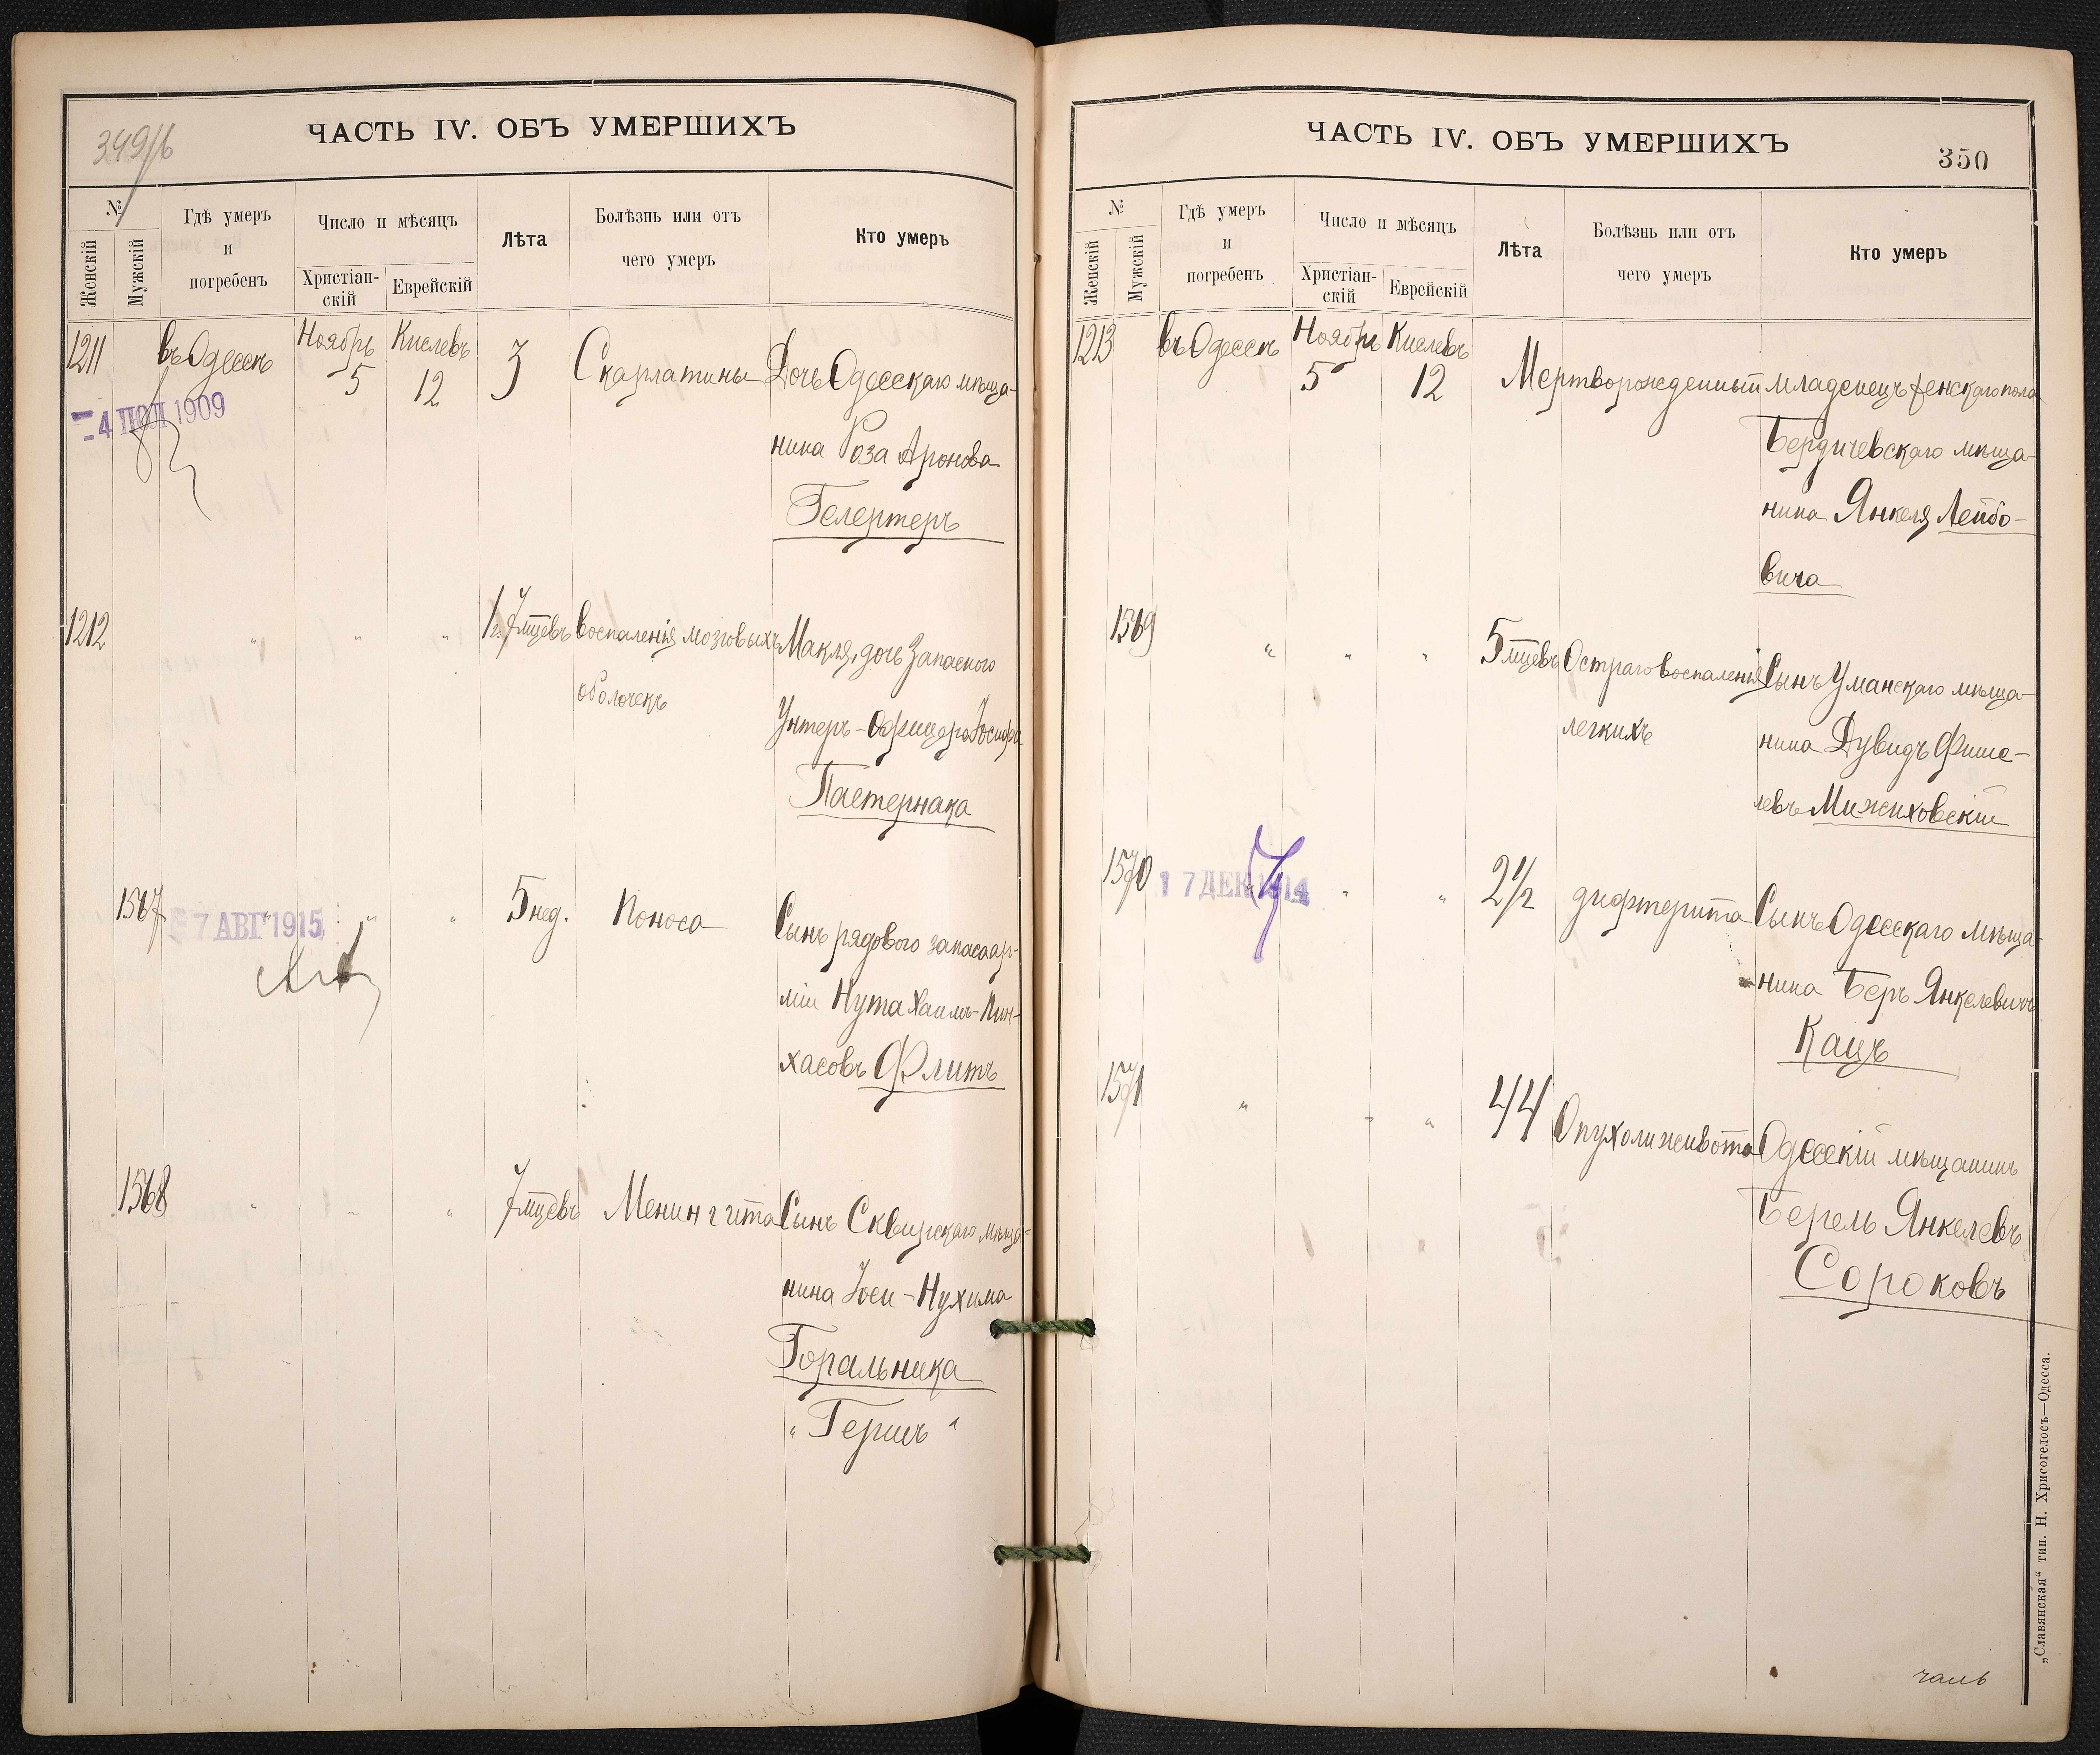 349/б
ЧАСТЬ IV. ОБЪ УМЕРШИХЪ
№
Женскій
Мужскій
Гдѣ умеръ
и
погребенъ
Число и мѣсяцъ
Христіан-
скій
Еврейскій
Лѣта
Болѣзнь или отъ
чего умеръ
Кто умеръ
1211
въ Одессѣ
Ноябрь
5
Кислевъ
12
3
Скарлатины
Дочь Одесскаго мѣща-
нина Роза Аронова
Гелертеръ
4 ІЮЛ 1909
1212
" " "
1 г. 7 мцевъ
воспаленія мозговыхъ
оболочекъ
Макля, дочь Запасного
Унтеръ-Офицера Іосифа
Пастернака
1567
7 АВГ 1915
" " "
5 нед.
Поноса
Сынъ рядового запаса ар-
міи Нута Хаимъ-Пин-
хасовъ Флитъ
1568
" " "
7 мцевъ
Менингита
Сынъ Сквирскаго мѣща-
нина Іоси-Нухима
Горальника
"Гершъ"
ЧАСТЬ IV. ОБЪ УМЕРШИХЪ
350
№
Женскій
Мужскій
Гдѣ умеръ
и
погребенъ
Число и мѣсяцъ
Христіан-
скій
Еврейскій
Лѣта
Болѣзнь или отъ
чего умеръ
Кто умеръ
1213
въ Одессѣ
Ноябрь
5
Кислевъ
12
Мертворожденный младенецъ женскаго пола
Бердичевскаго мѣща-
нина Янкеля Лейбо-
вича
1569
" " "
5 мцевъ
Остраго воспаленія
легкихъ
Сынъ Уманскаго мѣща-
нина Дувидъ Фише-
левъ Мижиховскій
1570
17 ДЕК 1914
" " "
2 1/2
дифтерита
Сынъ Одесскаго мѣща-
нина Беръ Янкелевичъ
Кацъ
1571
" " "
44
Опухоли живота
Одесскій мѣщанинъ
Берель Янкелевъ
Сороковъ
„Славянская“ тип. Н. Хрисогелосъ—Одесса.